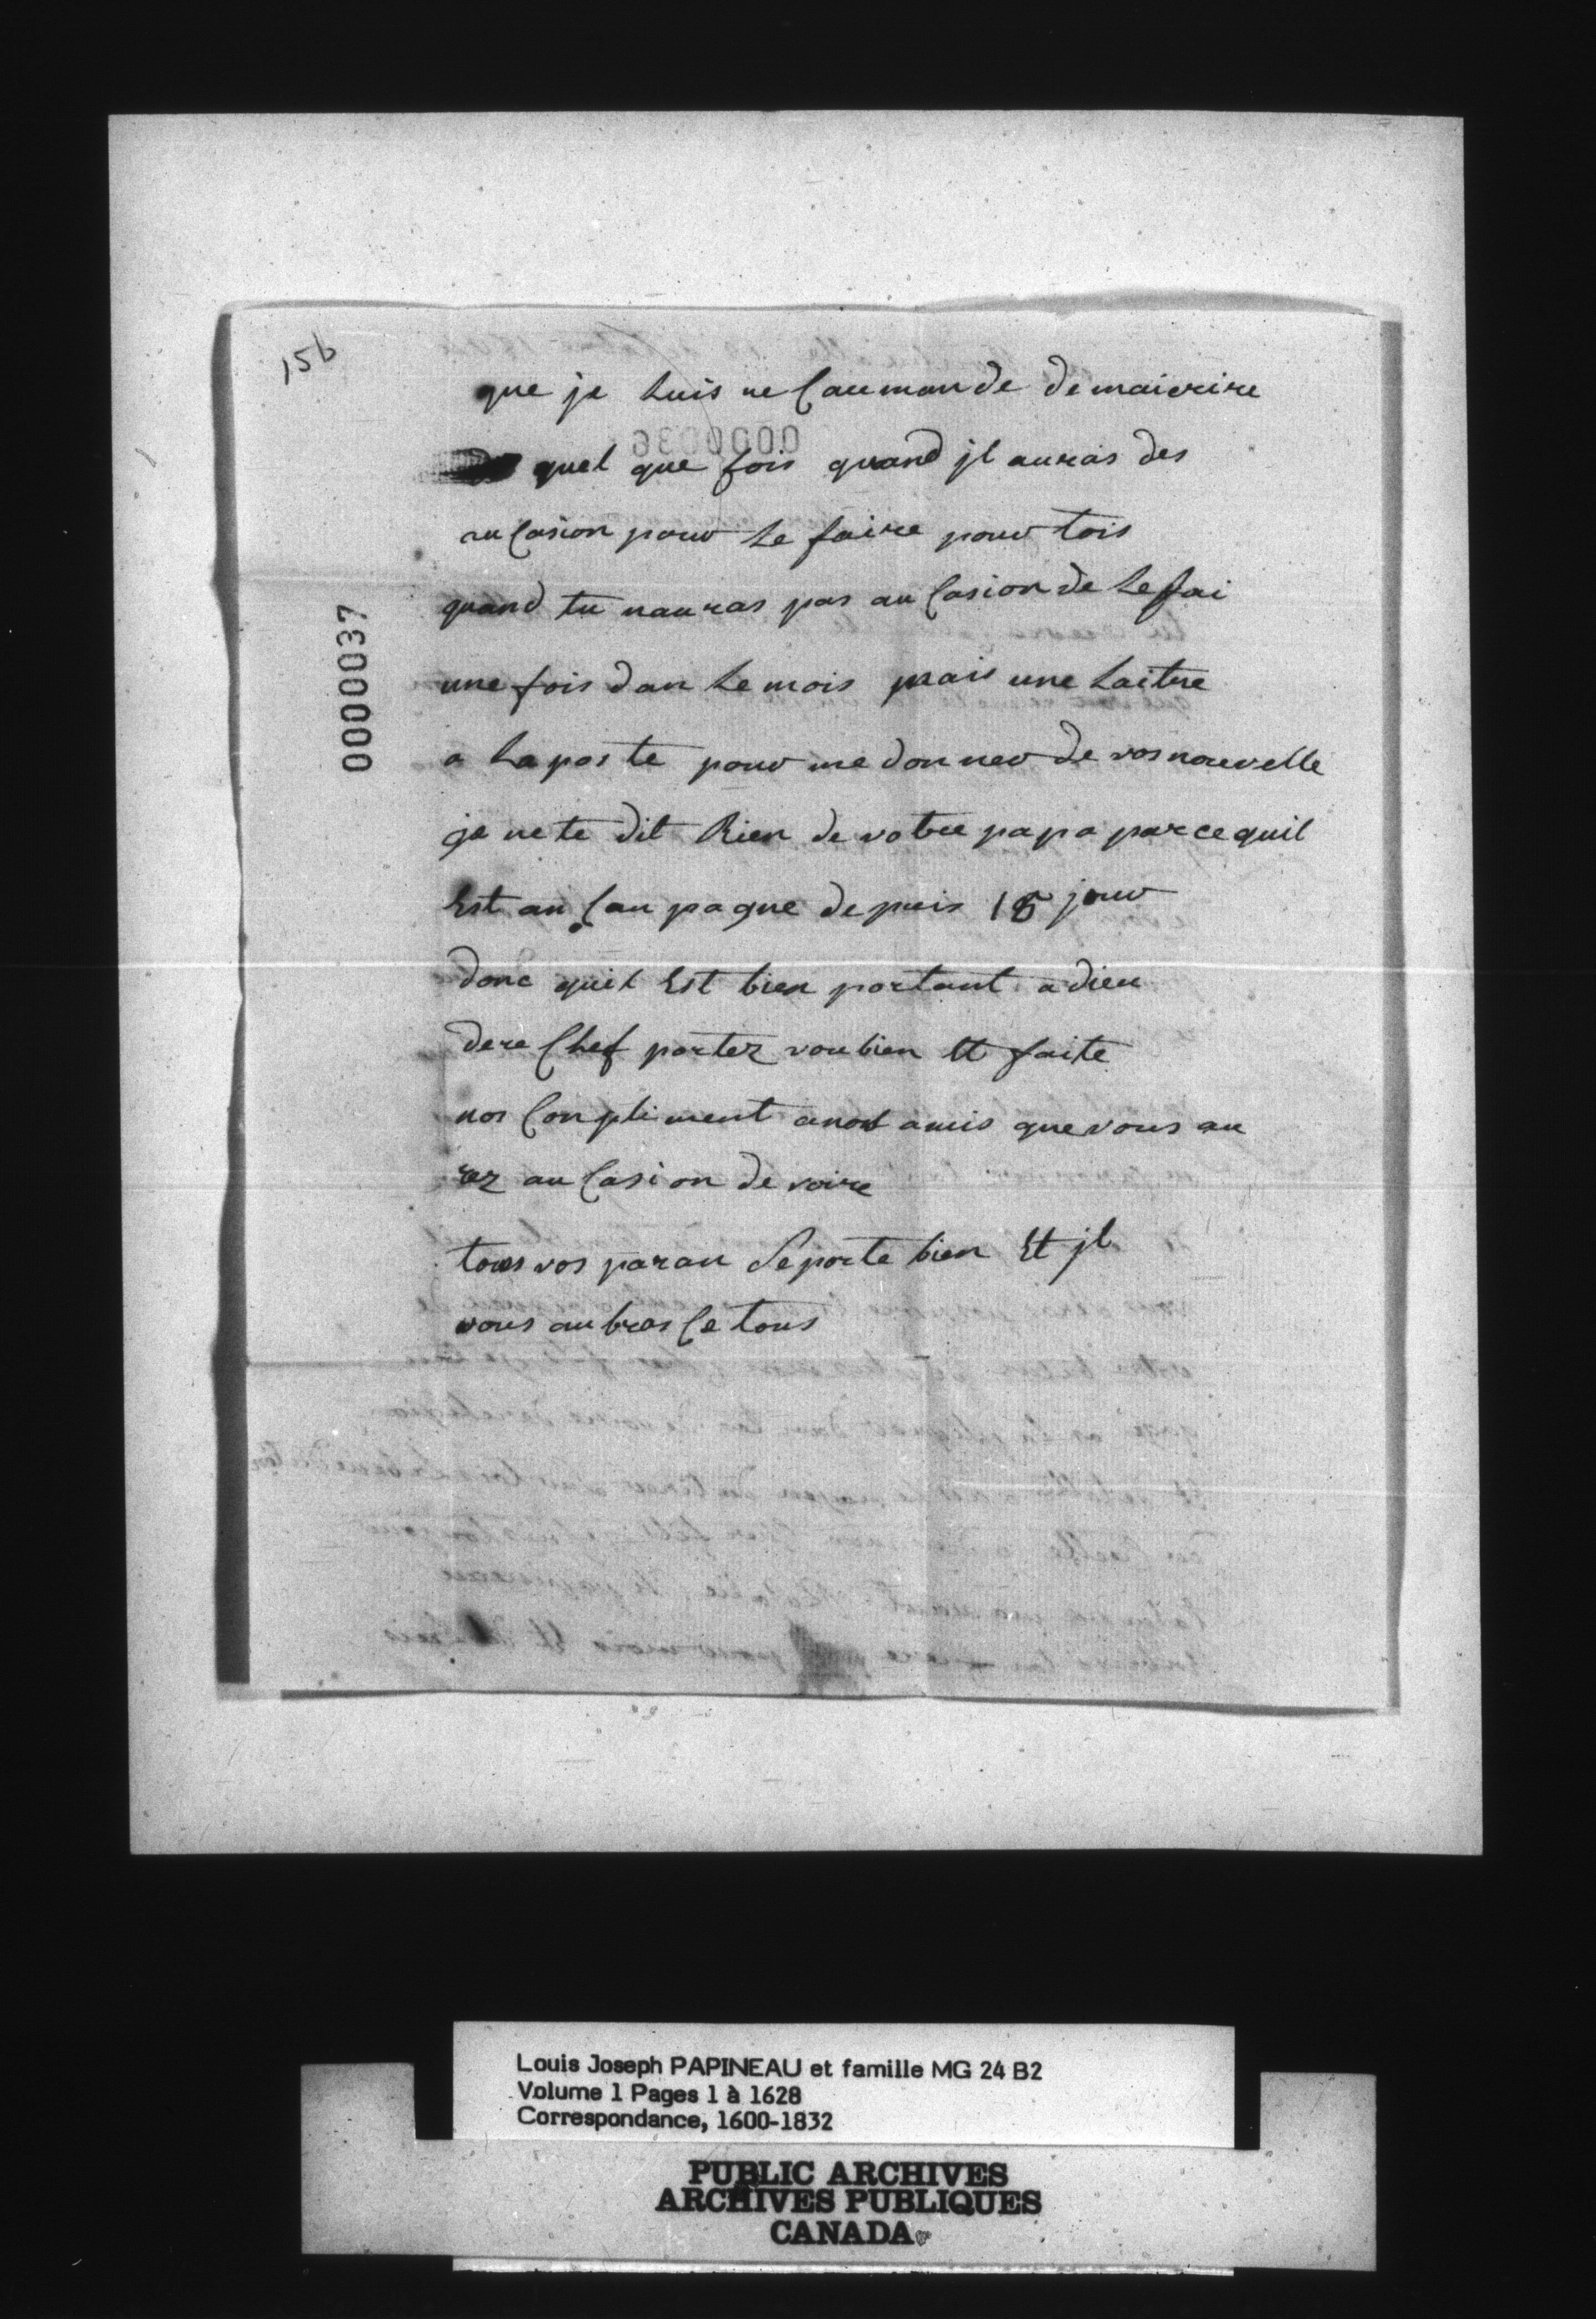 15b
que je luis re Caumande demaicrire
quel que fois quand jl auras des
au Casion pour le faire pour tois
quand tu nauras pas au Casion de le fai
une fois dan le mois mais une laitre
a la poste pour me donner de vos nouvelle
je ne te dit Rien de votre papa parce quil
Est au Can pagne depuis 15 jour
donc quil Est bien portant a dieu
dere Chef portez vou bien Et faite
nos Conpliment a nos amis que vous au
rez au Casion de voire
tous vos paran Se porte bien Et jl
vous au bras Ce tous
0000037
0000036
Louis Joseph PAPINEAU et famille MG 24 B2
Volume 1 Pages 1 à 1628
Correspondance, 1600-1832
PUBLIC ARCHIVES
ARCHIVES PUBLIQUES
CANADA